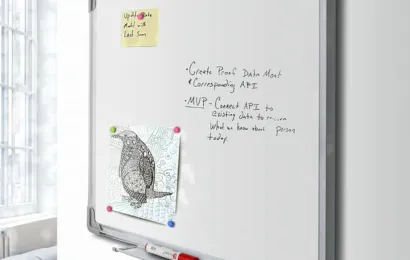 Update Data
Model with
· Create Proof Data
& Corresponding API
· MVP - Connect API to
existing data to
what we know about person
today.